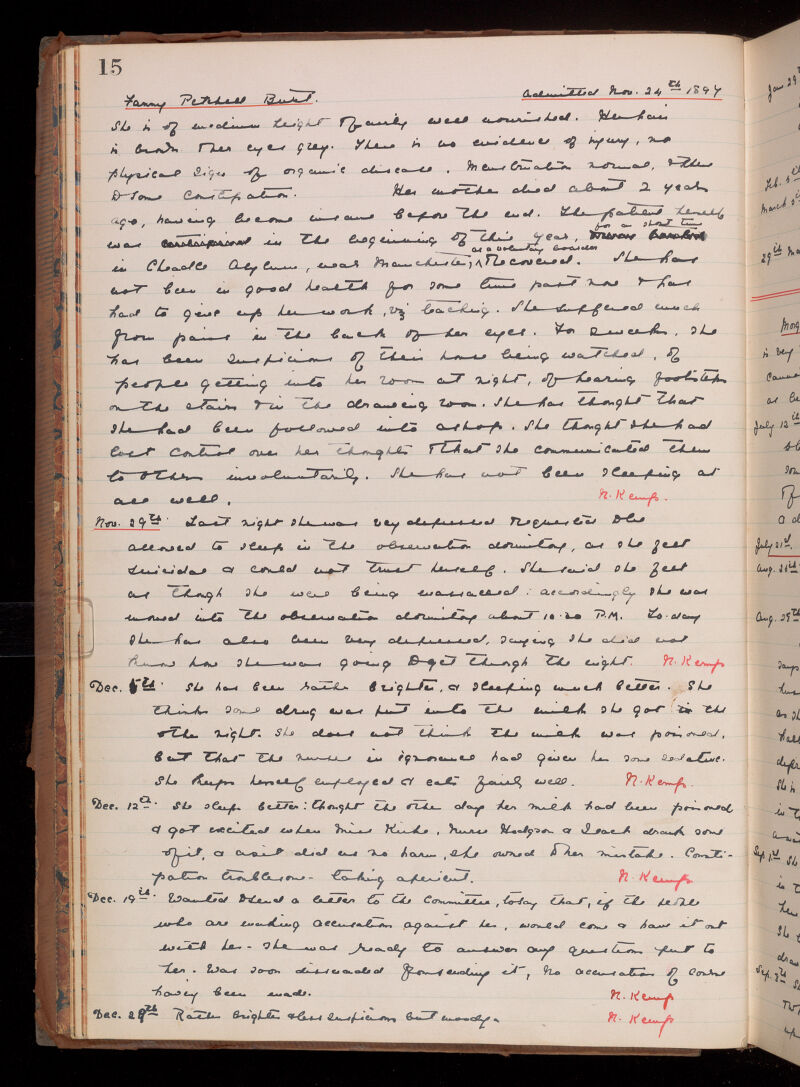 15
Fanny Petchell Burtt. Admitted Nov. 24th 1897
She is of medium height & fairly well nourished. Her hair
is brown & her eyes grey. There is no evidence of injury, no
physical signs of organic disease. Menstruation normal, & there
is some constipation. Her mother died about 2 years
ago, having become insane before the end. The patient herself
was in the beginning of this year, for a short time
in Cheadle Asylum, near Manchester, as a voluntary boarder & recovered. She has
not been in good health for some time past now & has
had to give up her work, viz teaching. She suffered much
from pains in the back of her eyes. For 2 weeks, she
has been suspicious of their house being watched, of
people getting into her room at night, of hearing footsteps
on the stairs & in the drawing room. She has thought that
she had been followed into a shop. She thought she had
lost control over her thoughts & that she communicated them
to others involuntarily. She has not been sleeping at
all well. N. Kemp.
Nov. 29th. Last night she was very depressed & requested to be
allowed to sleep in the observation dormitory, as she felt
suicidal & could not trust herself. She said she felt
as though she were being massacred: accordingly she was
moved into the observation dormitory about 10.20 P.M. To-day
she has also been very depressed, saying she did not
know how she was going to get through the night. N. Kemp
Dec. 5th. She has been rather brighter, & sleeping much better. She
thinks some drug was put into the milk she got in the
other night. She does not think the milk was poisoned,
but that the nurse in ignorance had given her some sedative.
She keeps herself employed & eats fairly well. N. Kemp.
Dec. 12th. She sleeps better: thought the other day her milk had been poisoned
& got excited when Miss Kirke, Nurse Hodgson & Leach drank some
of it, & as it did us no harm, she owned to her mistake. Consti-
pation troublesome - taking aperient. N. Kemp
Dec. 19th. Wanted to send a letter to the Committee, today that, if the people
who are making accusations against her, would come & have it out
with her - she was ready to answer any question put to
her. Was soon dissuaded from sending it, no accusation of course
having been made. N. Kemp
Dec. 28th Rather brighter & less suspicious but moody. N. Kemp
Jan. 29th
Feb. 5th
March 5th
29th Ma
is very
Canno
as be
July 12th
July 21st.
Aug.
Aug. 29th
says
She is
in t
Sep. 1st She
She t
Sep.